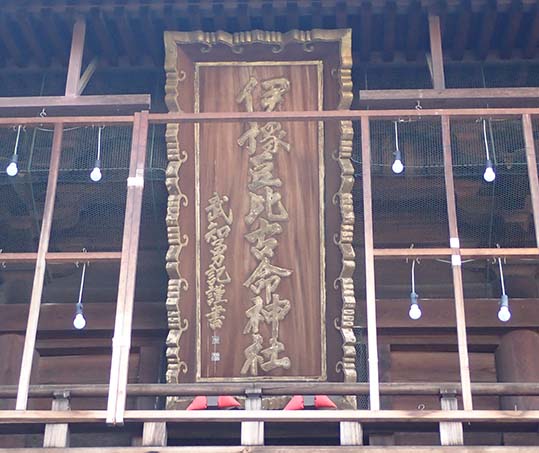 伊豫豆比古命神社
武智勇記謹書